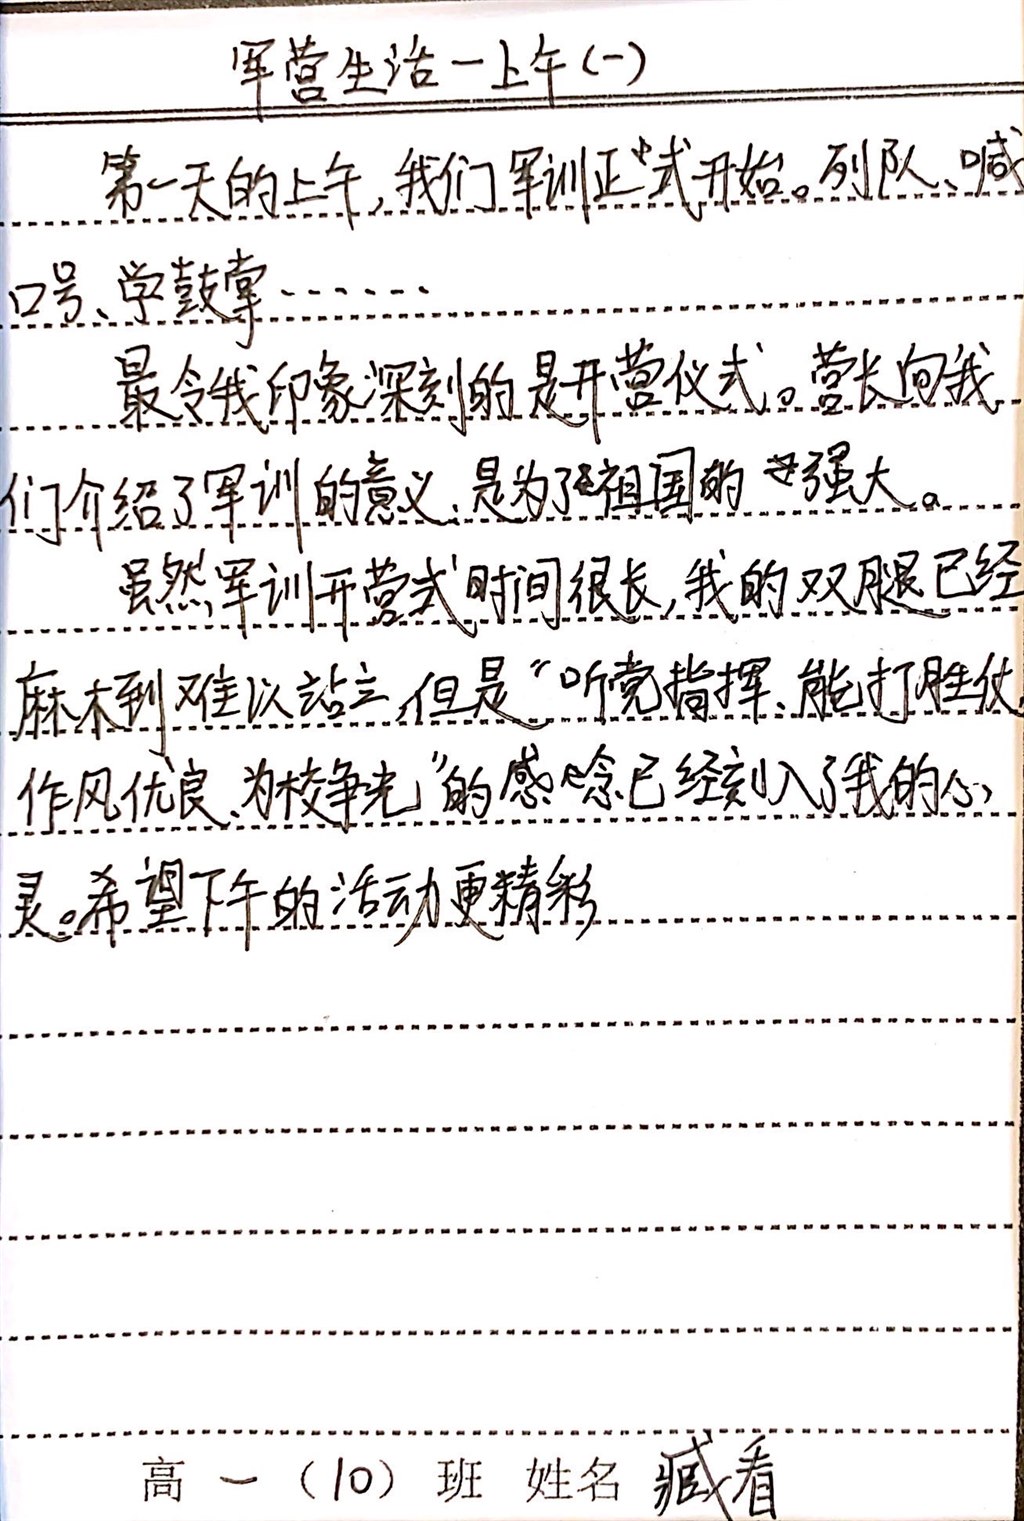 军营生活一上午(一)
第一天的上午,我们军训正式开始。列队、喊
口号、学鼓掌……
最令我印象深刻的是开营仪式。营长向我
们介绍了军训的意义,是为了祖国的强大。
虽然军训开营式时间很长,我的双腿已经
麻木到难以站立,但是“听党指挥、能打胜仗、
作风优良、为校争光”的感念已经刻入了我的心
灵。希望下午的活动更精彩
高一(10)班 姓名 臧看